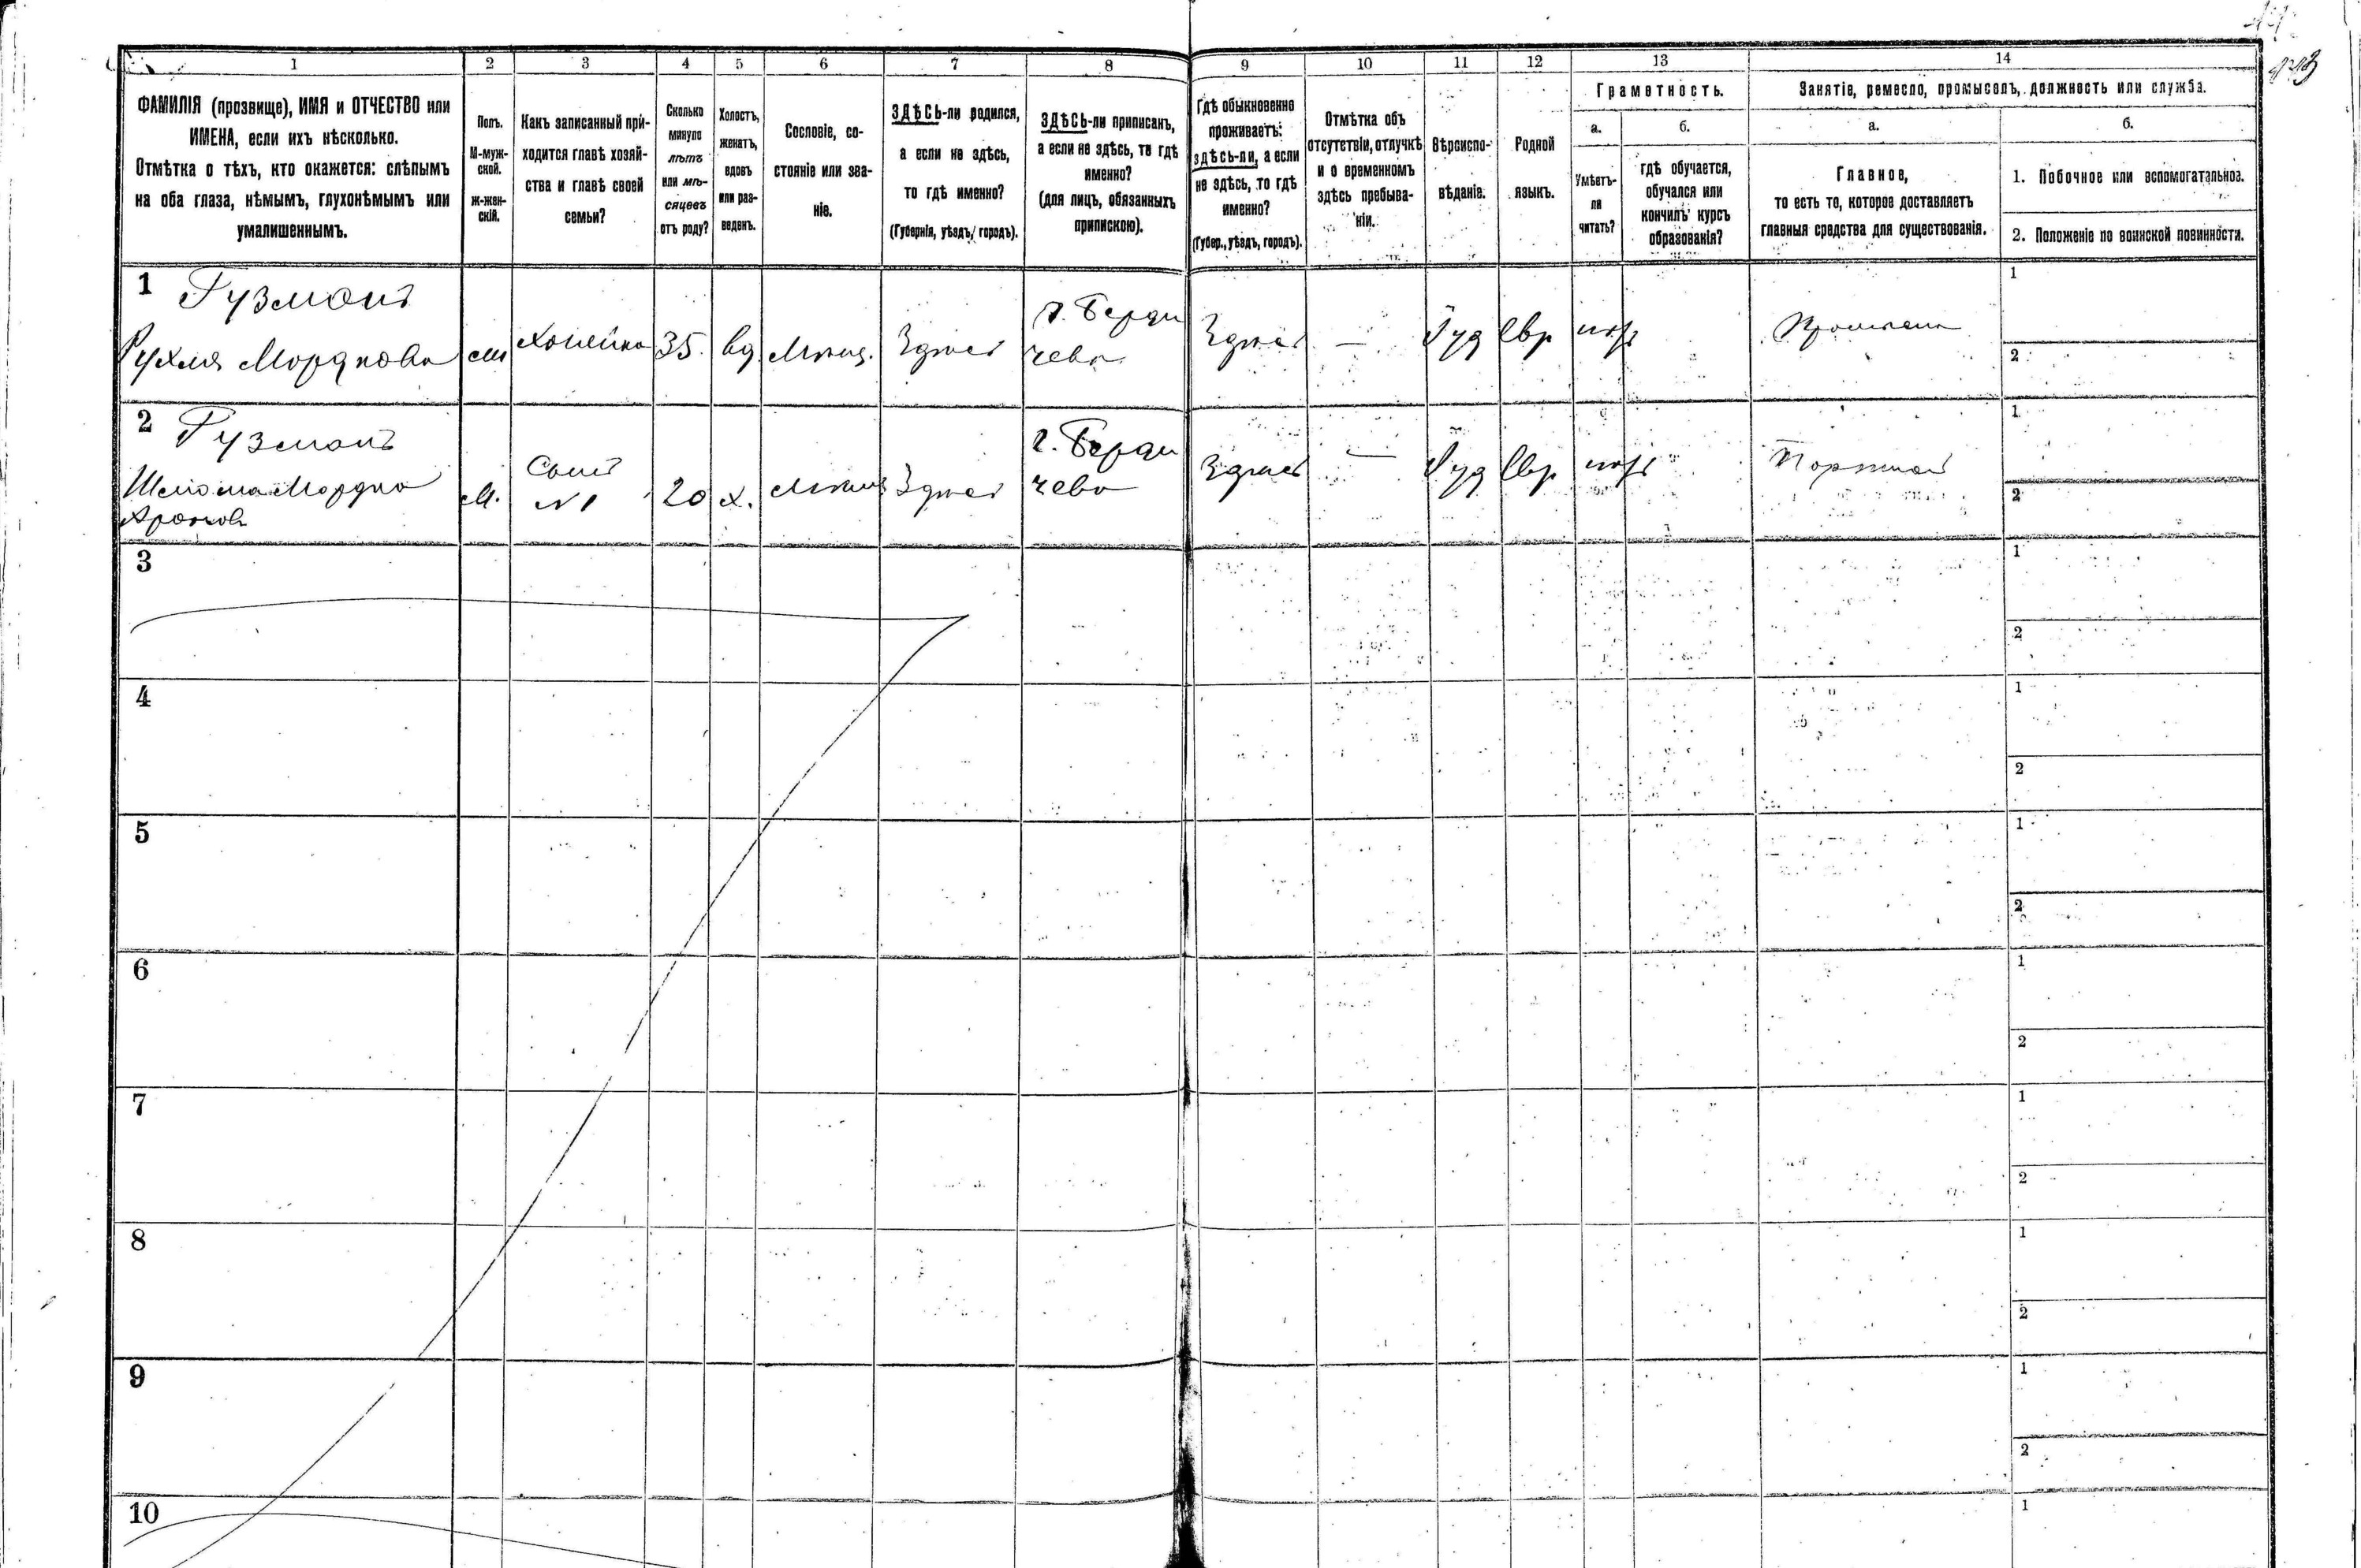 1 2 3 4 5 6 7 8 9 10 11 12 13 14
ФАМИЛІЯ (прозвище), ИМЯ и ОТЧЕСТВО или
ИМЕНА, если ихъ нѣсколько.
Отмѣтка о тѣхъ, кто окажется: слѣпымъ
на оба глаза, нѣмымъ, глухонѣмымъ или
умалишеннымъ.
Полъ.
М-муж-
ской.
Ж-жен-
скій.
Какъ записанный при-
ходится главѣ хозяй-
ства и главѣ своей
семьи?
Сколько
минуло
лѣтъ
или мѣ-
сяцевъ
отъ роду?
Холостъ,
женатъ,
вдовъ
или раз-
веденъ.
Сословіе, со-
стояніе или зва-
ніе.
ЗДѢСЬ-ли родился,
а если не здѣсь,
то гдѣ именно?
(Губернія, уѣздъ, городъ).
ЗДѢСЬ-ли приписанъ,
а если не здѣсь, то гдѣ
именно?
(для лицъ, обязанныхъ
припискою).
Гдѣ обыкновенно
проживаетъ:
здѣсь-ли, а если
не здѣсь, то гдѣ
именно?
(Губер., уѣздъ, городъ).
Отмѣтка объ
отсутствіи, отлучкѣ
и о временномъ
здѣсь пребыва-
ніи.
Вѣроиспо-
вѣданіе.
Родной
языкъ.
Грамотность.
а.
Умѣетъ-
ли
читать?
б.
гдѣ обучается,
обучался или
кончилъ курсъ
образованія?
Занятіе, ремесло, промыселъ, должность или служба.
а.
Главное,
то есть то, которое доставляетъ
главныя средства для существованія.
б.
1. Побочное или вспомогательное.
2. Положеніе по воинской повинности.
1 Гузманъ
Рухля Мордкова
Хозяйка
35.
вд
Мѣщ.
Здѣсь
г. Берди
чева
Здѣсь
—
Іуд
Евр
1
2
2 Гузманъ
Шелома Мордко
М.
Сынъ
N1
20
х.
Здѣсь
г. Берди
чева
Здѣсь
—
Іуд
Евр
Портной
1
2
3
1
2
4
1
2
5
1
2
6
1
2
7
1
2
8
1
2
9
1
2
10
1